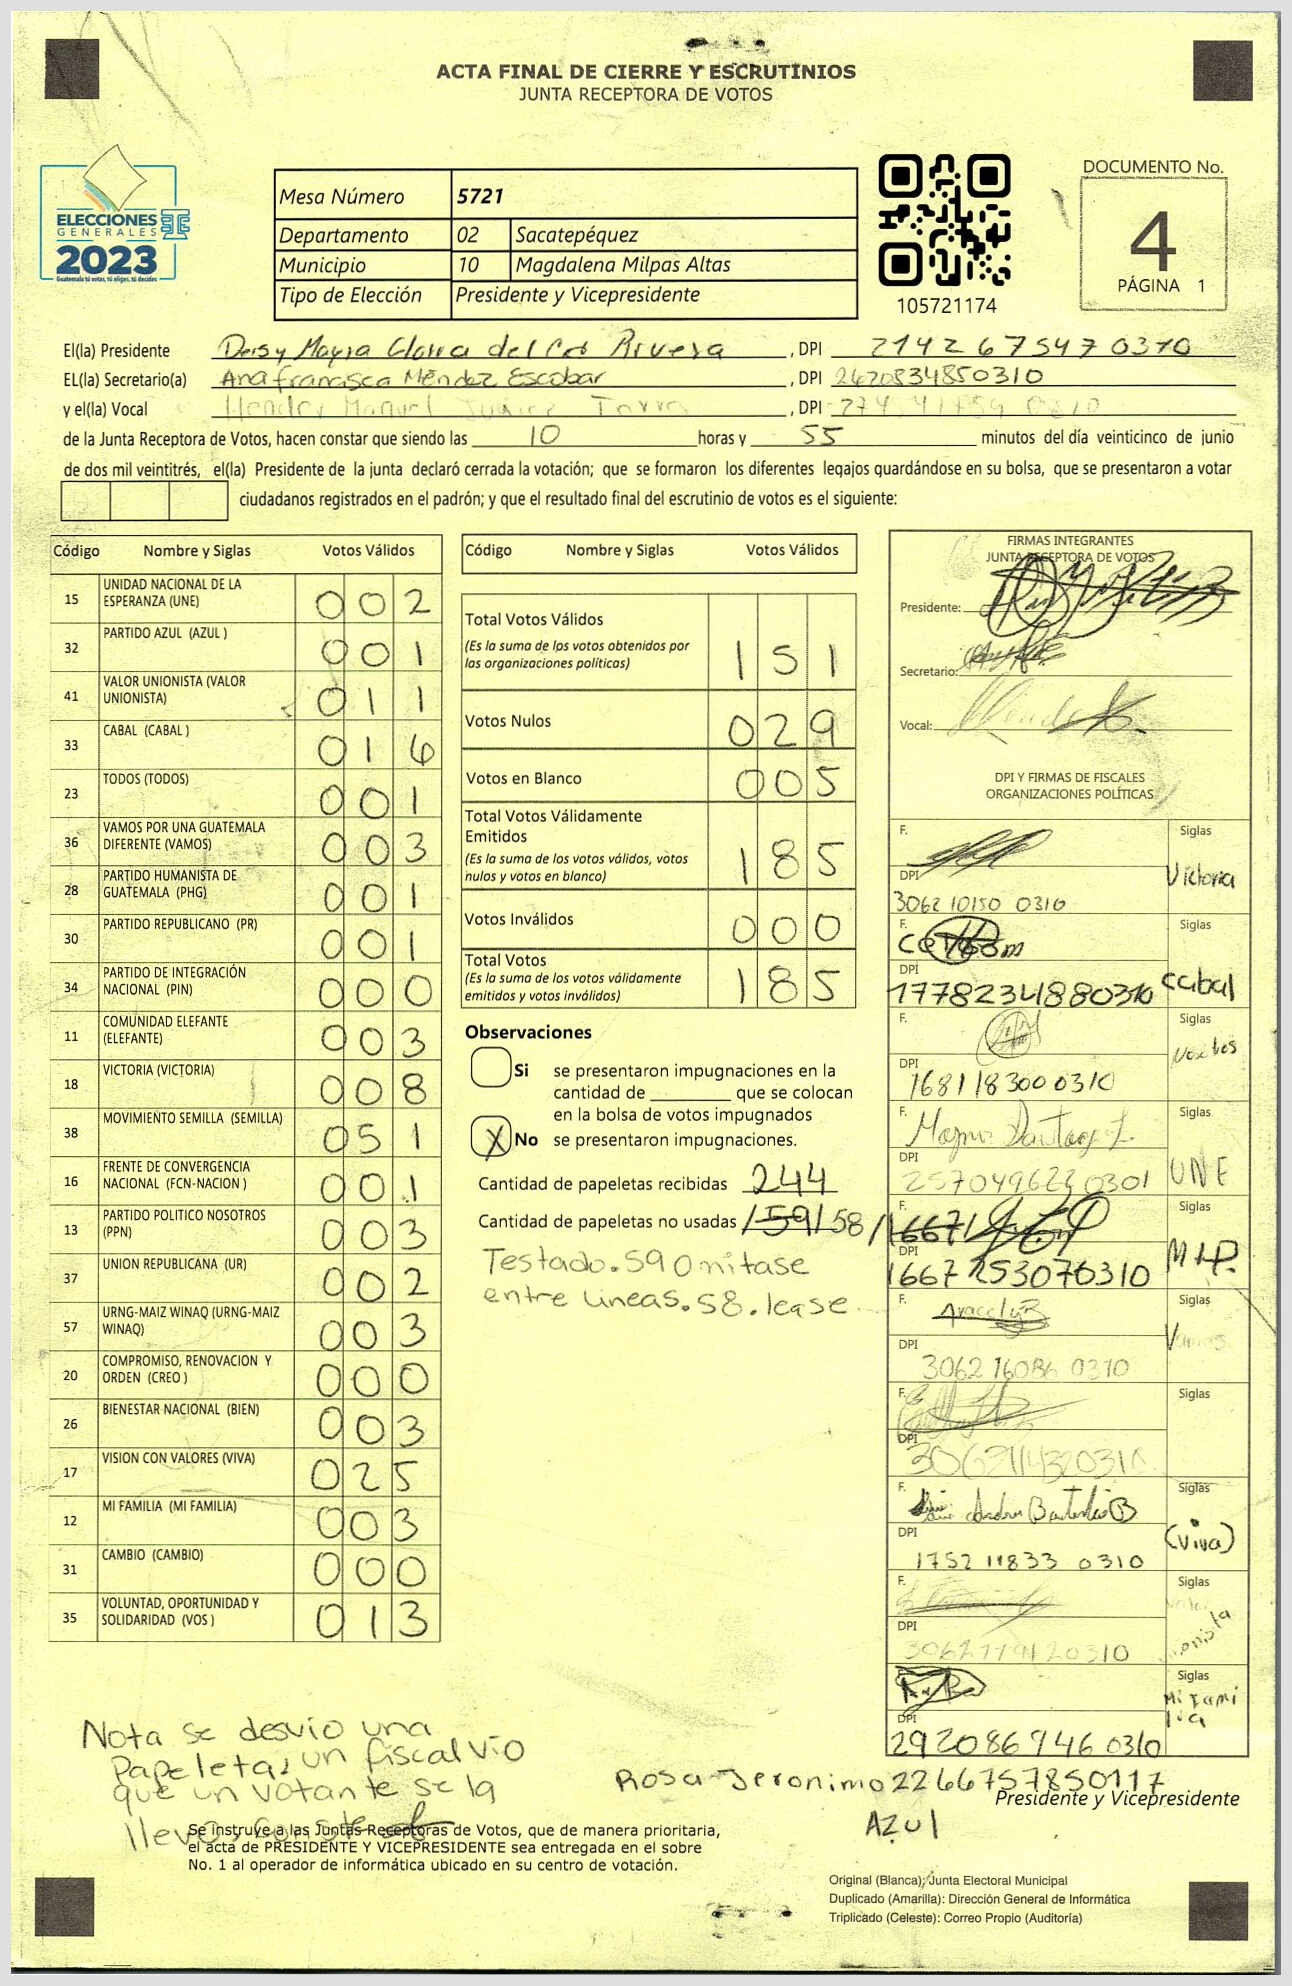 ACTA FINAL DE CIERRE Y ESCRUTINIOS
JUNTA RECEPTORA DE VOTOS
ELECCIONES
GENERALES
2023
Guatemala tú votas, tú eliges, tú decides
Mesa Número 5721
Departamento 02 Sacatepéquez
Municipio 10 Magdalena Milpas Altas
Tipo de Elección Presidente y Vicepresidente
105721174
DOCUMENTO No.
4
PÁGINA 1
El(la) Presidente Deisy Mayra Gloria del Cid Rivera , DPI 2142675470310
EL(la) Secretario(a) Ana francisca Méndez Escobar , DPI 2620834850310
y el(la) Vocal Manuel , DPI
de la Junta Receptora de Votos, hacen constar que siendo las 10 horas y 55 minutos del día veinticinco de junio
de dos mil veintitrés, el(la) Presidente de la junta declaró cerrada la votación; que se formaron los diferentes legajos guardándose en su bolsa, que se presentaron a votar
ciudadanos registrados en el padrón; y que el resultado final del escrutinio de votos es el siguiente:
Código Nombre y Siglas Votos Válidos
15 UNIDAD NACIONAL DE LA ESPERANZA (UNE) 002
32 PARTIDO AZUL (AZUL ) 001
41 VALOR UNIONISTA (VALOR UNIONISTA) 011
33 CABAL (CABAL ) 016
23 TODOS (TODOS) 001
36 VAMOS POR UNA GUATEMALA DIFERENTE (VAMOS) 003
28 PARTIDO HUMANISTA DE GUATEMALA (PHG) 001
30 PARTIDO REPUBLICANO (PR) 001
34 PARTIDO DE INTEGRACIÓN NACIONAL (PIN) 000
11 COMUNIDAD ELEFANTE (ELEFANTE) 003
18 VICTORIA (VICTORIA) 008
38 MOVIMIENTO SEMILLA (SEMILLA) 051
16 FRENTE DE CONVERGENCIA NACIONAL (FCN-NACION ) 001
13 PARTIDO POLITICO NOSOTROS (PPN) 003
37 UNION REPUBLICANA (UR) 002
57 URNG-MAIZ WINAQ (URNG-MAIZ WINAQ) 003
20 COMPROMISO, RENOVACION Y ORDEN (CREO ) 000
26 BIENESTAR NACIONAL (BIEN) 003
17 VISION CON VALORES (VIVA) 025
12 MI FAMILIA (MI FAMILIA) 003
31 CAMBIO (CAMBIO) 000
35 VOLUNTAD, OPORTUNIDAD Y SOLIDARIDAD (VOS ) 013
Código Nombre y Siglas Votos Válidos
Total Votos Válidos 151
(Es la suma de los votos obtenidos por
las organizaciones políticas)
Votos Nulos 029
Votos en Blanco 005
Total Votos Válidamente
Emitidos 185
(Es la suma de los votos válidos, votos
nulos y votos en blanco)
Votos Inválidos 000
Total Votos 185
(Es la suma de los votos válidamente
emitidos y votos inválidos)
Observaciones
Si se presentaron impugnaciones en la
cantidad de ________ que se colocan
en la bolsa de votos impugnados
X No se presentaron impugnaciones.
Cantidad de papeletas recibidas 244
Cantidad de papeletas no usadas /59/58/
Testado.59 Omitase
entre lineas.58.lease
FIRMAS INTEGRANTES
JUNTA RECEPTORA DE VOTOS
Presidente:
Secretario:
Vocal:
DPI Y FIRMAS DE FISCALES
ORGANIZACIONES POLÍTICAS
F. Siglas
DPI Victoria
3062 10150 0310
F. Siglas
DPI cabal
1778234880310
F. Siglas
DPI
1681183000310
F. Siglas
DPI UNE
257049623 0301
F. Siglas
DPI MLP.
1667253070310
F. Aracely Siglas
DPI Vamos
3062 16086 0310
F. Siglas
DPI
F. Andres Siglas
DPI (Viva)
1752 11833 0310
F. Siglas
DPI
F. Siglas
DPI Mi Fami lia
2920867460310
Nota se desvio una
Papeleta, un fiscal vio
que un votante se la
llevo,
Rosa Jeronimo 2266757850117
AZUl
Presidente y Vicepresidente
Se instruye a las Juntas Receptoras de Votos, que de manera prioritaria,
el acta de PRESIDENTE Y VICEPRESIDENTE sea entregada en el sobre
No. 1 al operador de informática ubicado en su centro de votación.
Original (Blanca): Junta Electoral Municipal
Duplicado (Amarilla): Dirección General de Informática
Triplicado (Celeste): Correo Propio (Auditoría)